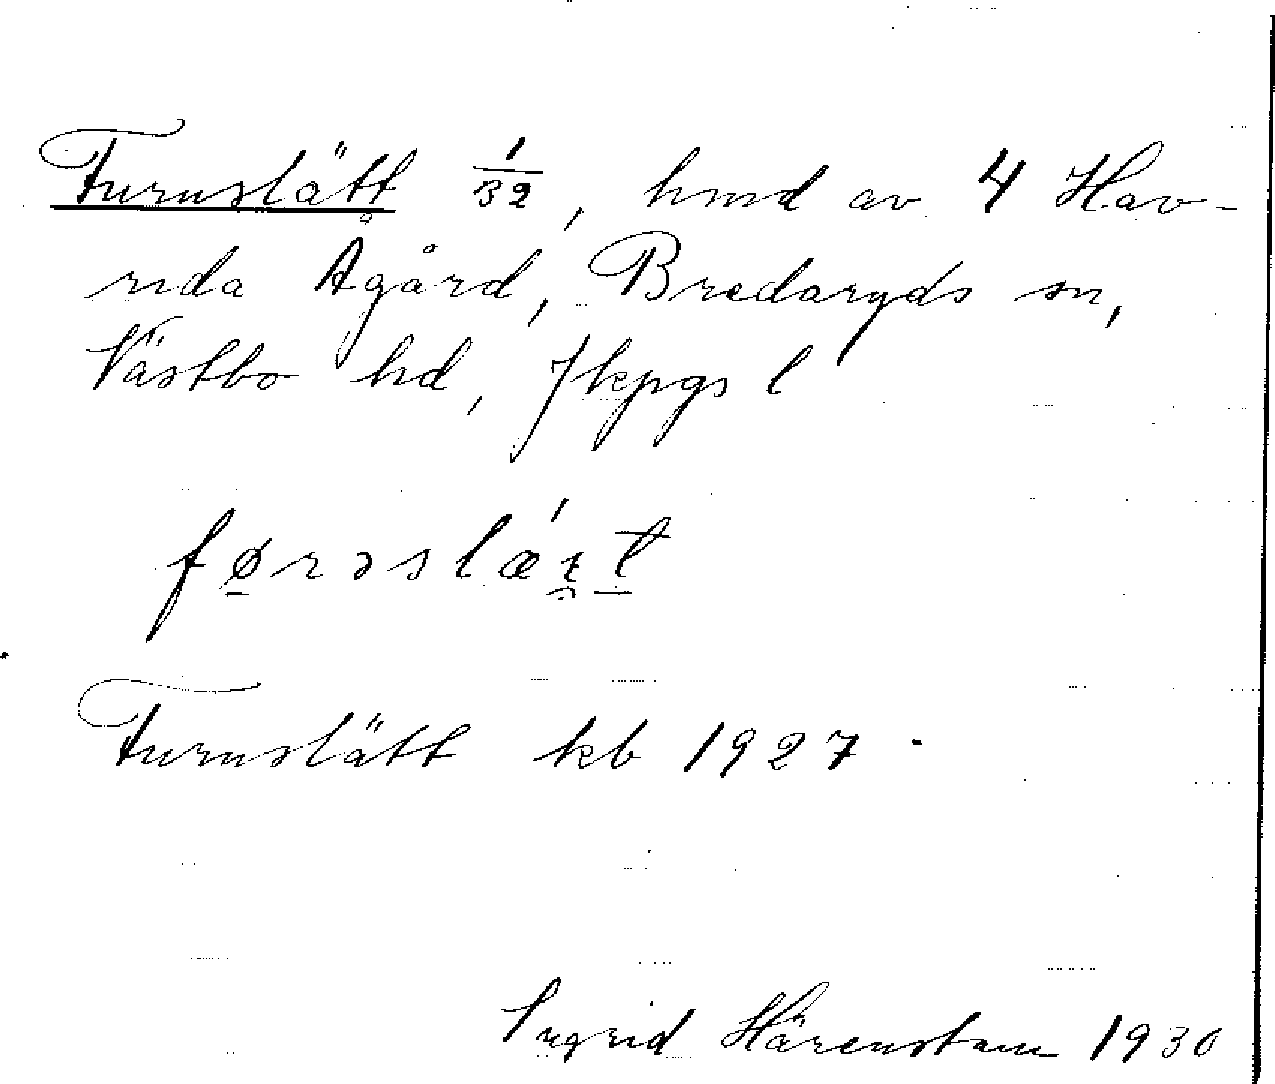 Furuslätt 1/32, hmd av 4 Hav-
rida Ågård, Bredaryds sn,
Västbo hd, Jkpgs l
førəslǽt̠
Furuslätt kb 1927.
Ingrid Härenstam 1930